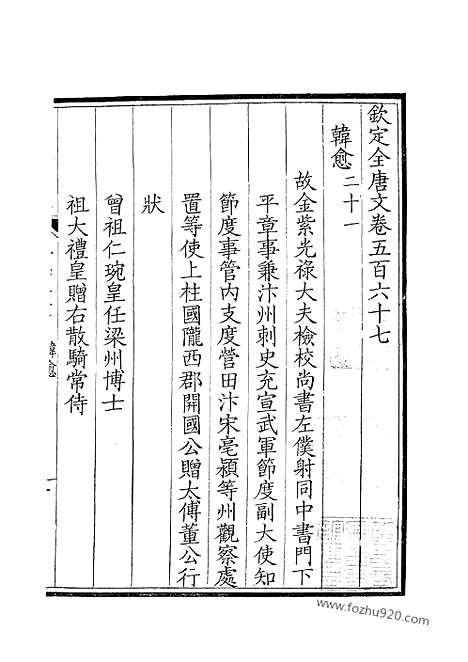 欽定全唐文卷五百六十七
韓愈二十一
故金紫光祿大夫檢校尚書左僕射同中書門下
平章事兼汴州刺史充宣武軍節度副大使知
節度事管內支度營田汴宋亳潁等州觀察處
置等使上柱國隴西郡開國公贈太傅董公行
狀
曾祖仁琬皇任梁州博士
祖大禮皇贈右散騎常侍
韓愈
www.fozhu920.com